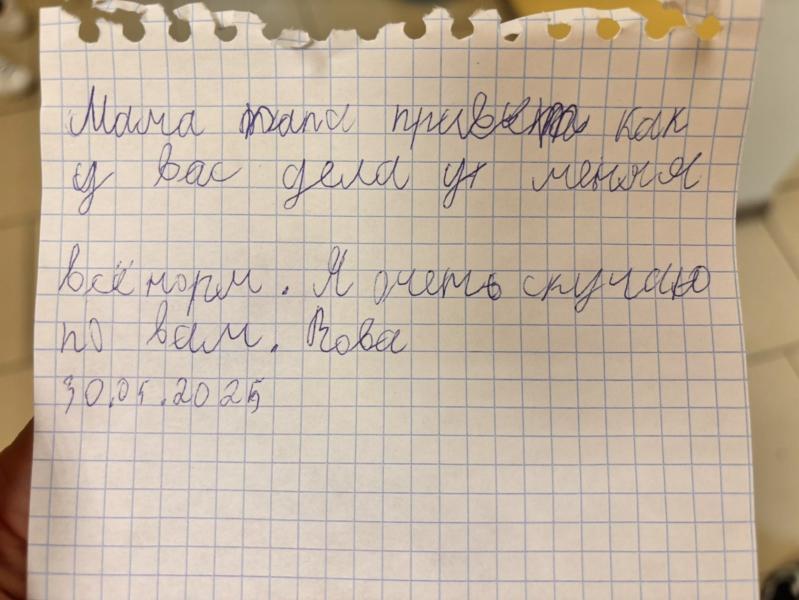 Мама папа привет как
у вас дела у меня
всё норм. Я очень скучаю
по вам. Вова
30.05.2025